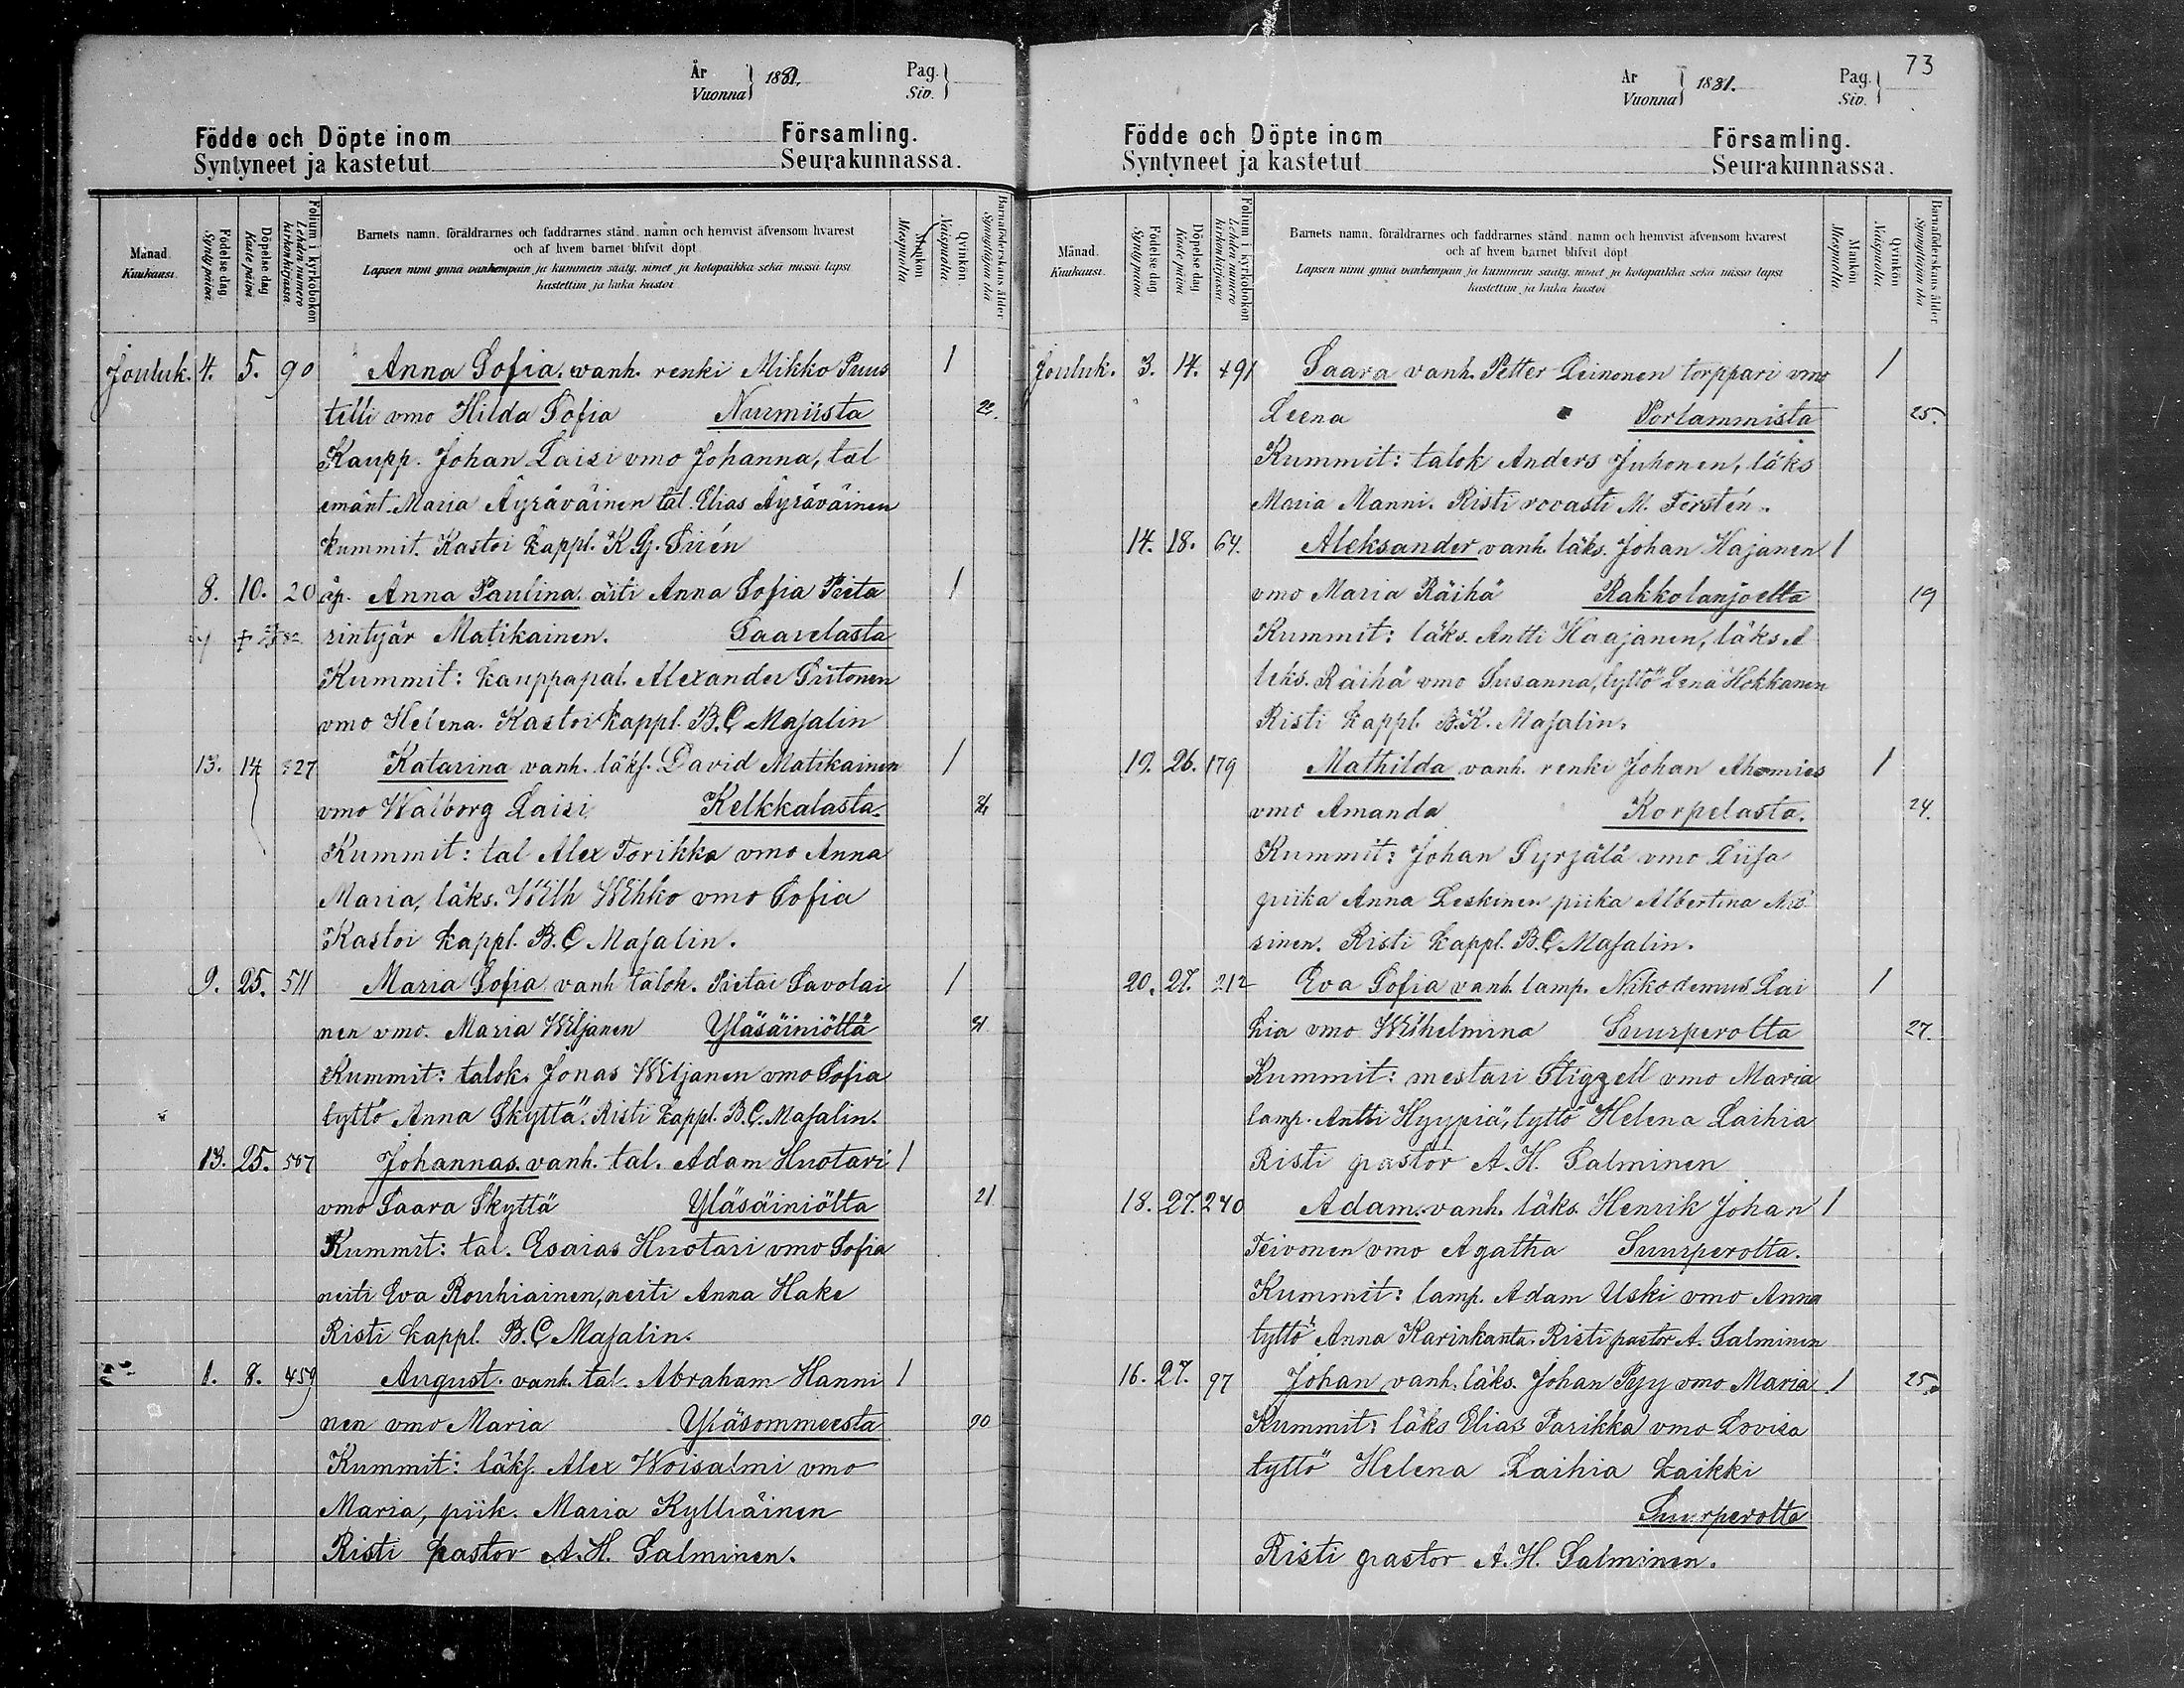 År
Vuonna } 1881.
Pag.
Siv. }
Födde och Döpte inom Församling.
Syntyneet ja kastetut Seurakunnassa.
Månad. Kuukausi.
Födelse dag. Synty päivä.
Döpelse dag. Kaste päivä.
Folium i kyrkoboken Lehden numero kirkonkirjassa.
Barnets namn, föräldrarnes och faddrarnes stånd, namn och hemvist äfvensom hvarest
och af hvem barnet blifvit döpt
Lapsen nimi ynnä vanhempain ja kummein sääty, nimet ja kotopaikka sekä missä lapsi
kastettiin ja kuka kastoi
Mankön Miespuolia.
Qvinkön Naispuolia.
Barnaföderskans ålder Synnyttäjän ikä
Jouluk. 4. 5. 90 Anna Sofia, wanh. renki Mikko Puus 1
telli vmo Hilda Sofia Nurmiista
Kaupp. Johan Laisi vmo Johanna, tal
emänt. Maria Äyräväinen tal. Elias Äyräväinen
kummit. Kastoi kappl. K.G. Sirén
8. 10. 20 äp. Anna Paulina, äiti Anna Sofia Prita 1
rintyär Matikainen. Saarelasta
Kummit: kauppapal. Alexander Pritonen
vmo Helena. Kastoi kappl. B.C Masalin
13. 14 327 Katarina vanh. läks. David Matikainen 1
vmo Walborg Laisi Kelkkalasta.
Kummit: tal Alex Torikka vmo Anna
Maria, läks. Wilh Wihko vmo Sofia
Kastoi kappl. B.C Masalin.
9. 25. 511 Maria Sofia vanh talok. Pietari Savolai 1
nen vmo. Maria Wiljanen Yläsäiniöltä 31
Kummit: talok. Jonas Wiljanen vmo Sofia
tyttö Anna Skyttä. Risti kappl. B.C. Masalin.
13. 25. 507 Johannas. vanh. tal. Adam Huotari 1
vmo Saara Skyttä Yläsäiniöltä 21
Kummit: tal. Esaias Huotari vmo Sofia
neiti Eva Rouhiainen, neiti Anna Hake
Risti kappl. B.C Masalin.
1. 8. 459 August. vanh. tal. Abraham Hanni 1
nen vmo Maria Yläsommeesta
Kummit: läks. Alex Woisalmi vmo
Maria, piik. Maria Kylliäinen
Risti pastor A.H. Salminen.
73
År
Vuonna } 1881.
Pag.
Siv. }
Födde och Döpte inom Församling.
Syntyneet ja kastetut Seurakunnassa.
Månad. Kuukausi.
Födelse dag. Synty päivä
Döpelse dag. Kaste päivä
Folium i kyrkoboken Lehden numero kirkonkirjassa
Barnets namn, föräldrarnes och faddrarnes stånd, namn och hemvist äfvensom hvarest
och af hvem barnet blifvit döpt
Lapsen nimi ynnä vanhempain ja kummein sääty, nimet ja kotopaikka sekä missä lapsi
kastettiin ja kuka kastoi
Mankön Miespuolia
Qvinkön Naispuolia
Barnaföderskans ålder Synnyttäjän ikä
Jouluk. 3. 14. 491 Saara vanh. Petter Leinonen torppari vmo 1
Leena Portammista 25.
Kummit: talok Anders Juhonen, läks
Maria Manni. Risti rovasti M. Forstén.
14. 18. 64. Aleksander vanh. läks. Johan Hajanen 1
vmo Maria Räihä Rakkolanjoelta 19
Kummit: läks. Antti Haajanen, läks A
leks. Räihä vmo Susanna, tyttö Lena Hokkanen
Risti kappl. B.K. Masalin.
19. 26. 179 Mathilda vanh. renki Johan Ahomies 1
vmo Amanda Korpelasta. 24.
Kummit: Johan Syrjälä vmo Liisa
piika Anna Leskinen piika Albertina
sinen. Risti kappl. B.C Masalin.
20. 27. 212 Eva Sofia vanh. lamp. Nikodemus Lai 1
hia vmo Wilhelmina Suurperolta 27.
Kummit: mestari Stigzell vmo Maria
lamp. Antti Hyypiä, tyttö Helena Laihia
Risti pastor A.H. Salminen
18. 27. 240 Adam. vanh. läks. Henrik Johan 1
Teivonen vmo Agatha Suurperolta.
Kummit: lamp. Adam Uski vmo Anna
tyttö Anna Karinkanta. Risti pastor A. Salminen
16. 27. 97 Johan vanh. läks. Johan Pyy vmo Maria 1 25.
Kummit: läks Elias Parikka vmo Lovisa
tyttö Helena Laihia kaikki
Suurperolta
Risti pastor A.H. Salminen.